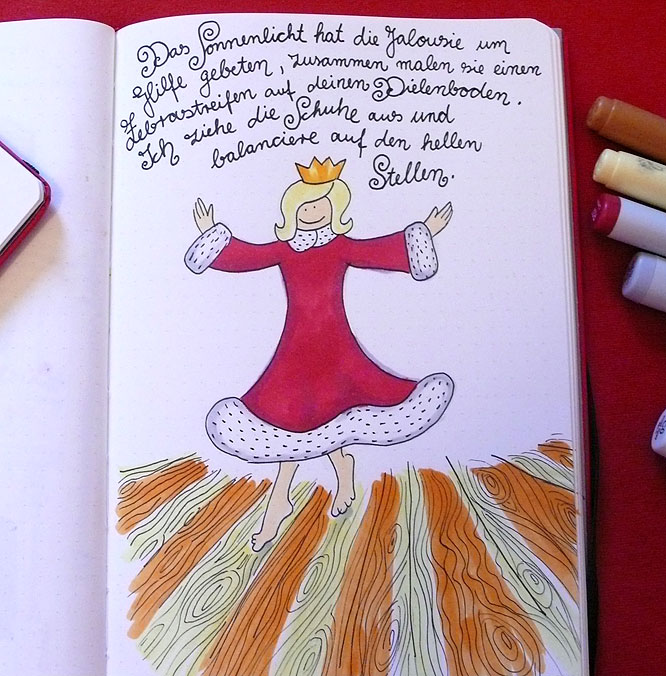 Das Sonnenlicht hat die Jalousie um
Hilfe gebeten, zusammen malen sie einen
Zebrastreifen auf deinen Dielenboden.
Ich ziehe die Schuhe aus und
balanciere auf den hellen
Stellen.